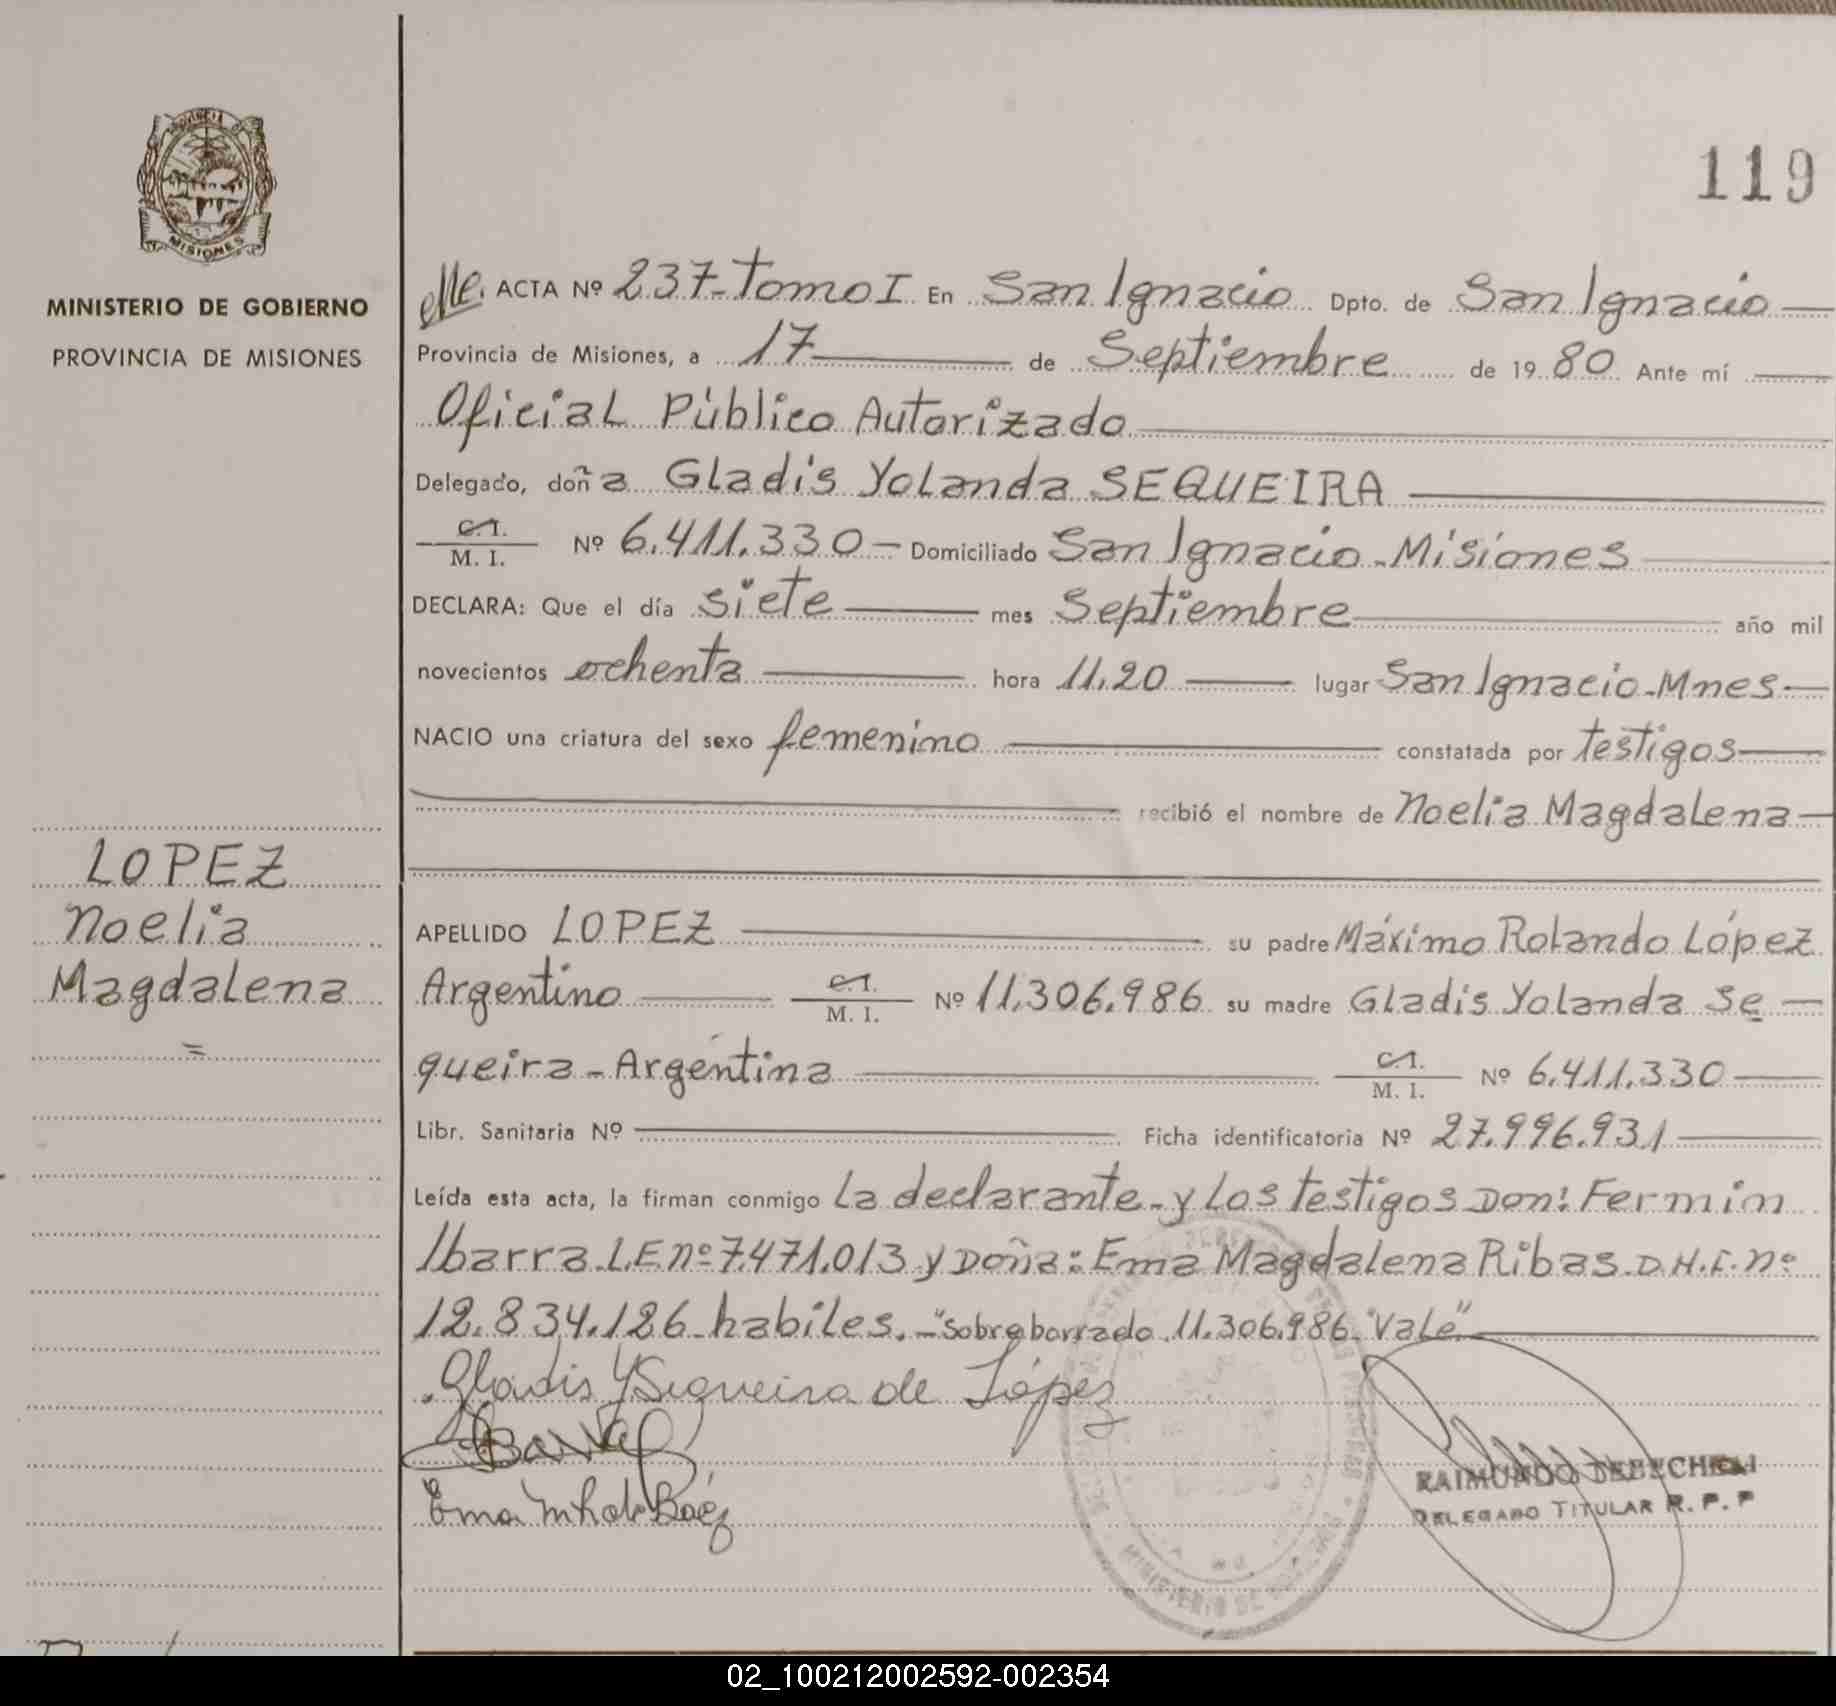 PROVINCIA DE
MISIONES
MINISTERIO DE GOBIERNO
PROVINCIA DE MISIONES
LOPEZ
Noelia
Magdalena
=
119
ACTA Nº 237-Tomo I En San Ignacio Dpto. de San Ignacio
Provincia de Misiones, a 17 de Septiembre de 1980 Ante mí
Oficial Público Autorizado
Delegado, doña Gladis Yolanda SEQUEIRA
C.I. / M. I. Nº 6.411.330- Domiciliado San Ignacio-Misiones
DECLARA: Que el día siete mes Septiembre año mil
novecientos ochenta hora 11,20 lugar San Ignacio-Mnes-
NACIO una criatura del sexo femenino constatada por testigos
recibió el nombre de Noelia Magdalena
APELLIDO LOPEZ su padre Máximo Rolando López
Argentino C.I. / M. I. Nº 11.306.986 su madre Gladis Yolanda Se
queira-Argentina C.I. / M. I. Nº 6.411.330
Libr. Sanitaria Nº Ficha identificatoria Nº 27.996.931
Leída esta acta, la firman conmigo La declarante-y Los testigos Don: Fermin
Ibarra.L.E nº 7.471.013 y Doña: Ema Magdalena Ribas D.N.I. nº
12.834.126-habiles.-"Sobreborrado 11.306.986-"Vale"
Gladis Y Sequeira de López
Ibarra
Ema M R de Baéz
MINISTERIO DE
RAIMUNDO DEBECHELI
DELEGADO TITULAR R. P. P
02_100212002592-002354